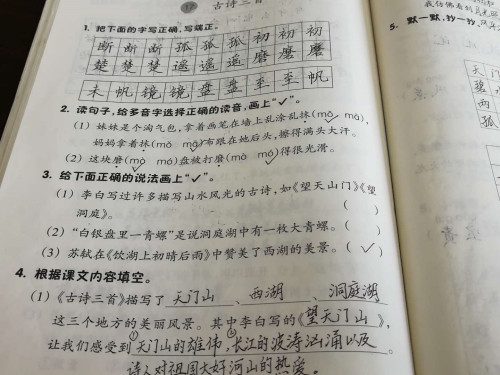 17 古诗三首
1. 把下面的字写正确,写端正。
断 断 断 孤 孤 孤 初 初 初 磨
楚 楚 楚 遥 遥 遥 磨 磨
未 帆 镜 镜 盘 盘 至 至 帆
2. 读句子,给多音字选择正确的读音,画上“✓”。
(1) 妹妹是个淘气包,拿着画笔在墙上乱涂乱抹(mǒ mā),
妈妈拿着抹(mǒ mā)布跟在她后头,擦得满头大汗。
(2) 这块磨(mò mó)盘被打磨(mò mó)得很光滑。
3. 给下面正确的说法画上“✓”。
(1) 李白写过许多描写山水风光的古诗,如《望天门山》《望
洞庭》。 ( )
(2) “白银盘里一青螺”是说洞庭湖中有一枚大青螺。( )
(3) 苏轼在《饮湖上初晴后雨》中赞美了西湖的美景。(✓)
4. 根据课文内容填空。
(1)《古诗三首》描写了 天门山 、 西湖 、 洞庭湖
这三个地方的美丽风景。其中李白写的《望天门山》,
让我们感受到①天门山的雄伟,②长江的波涛汹涌以及
诗人对祖国大好河山的热爱。
5. 默一默,抄一抄,